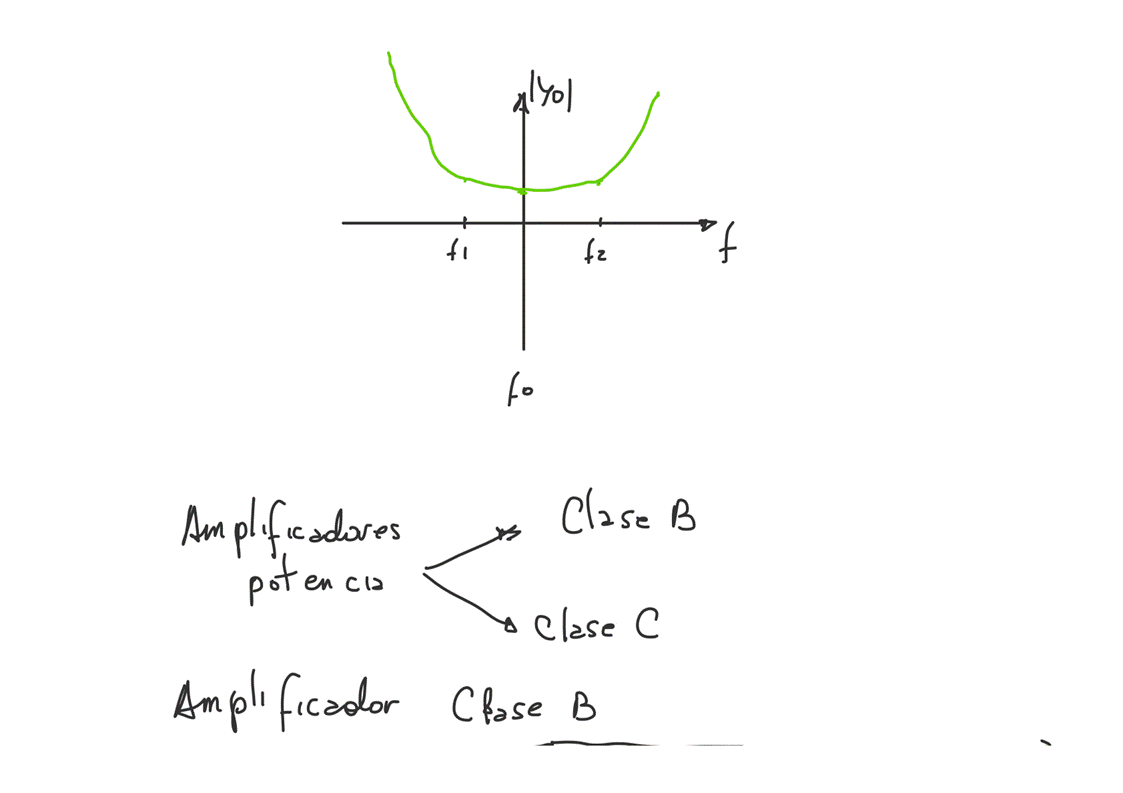 |Yo|
f1
f2
f
fo
Amplificadores
potencia
Clase B
Clase C
Amplificador Clase B